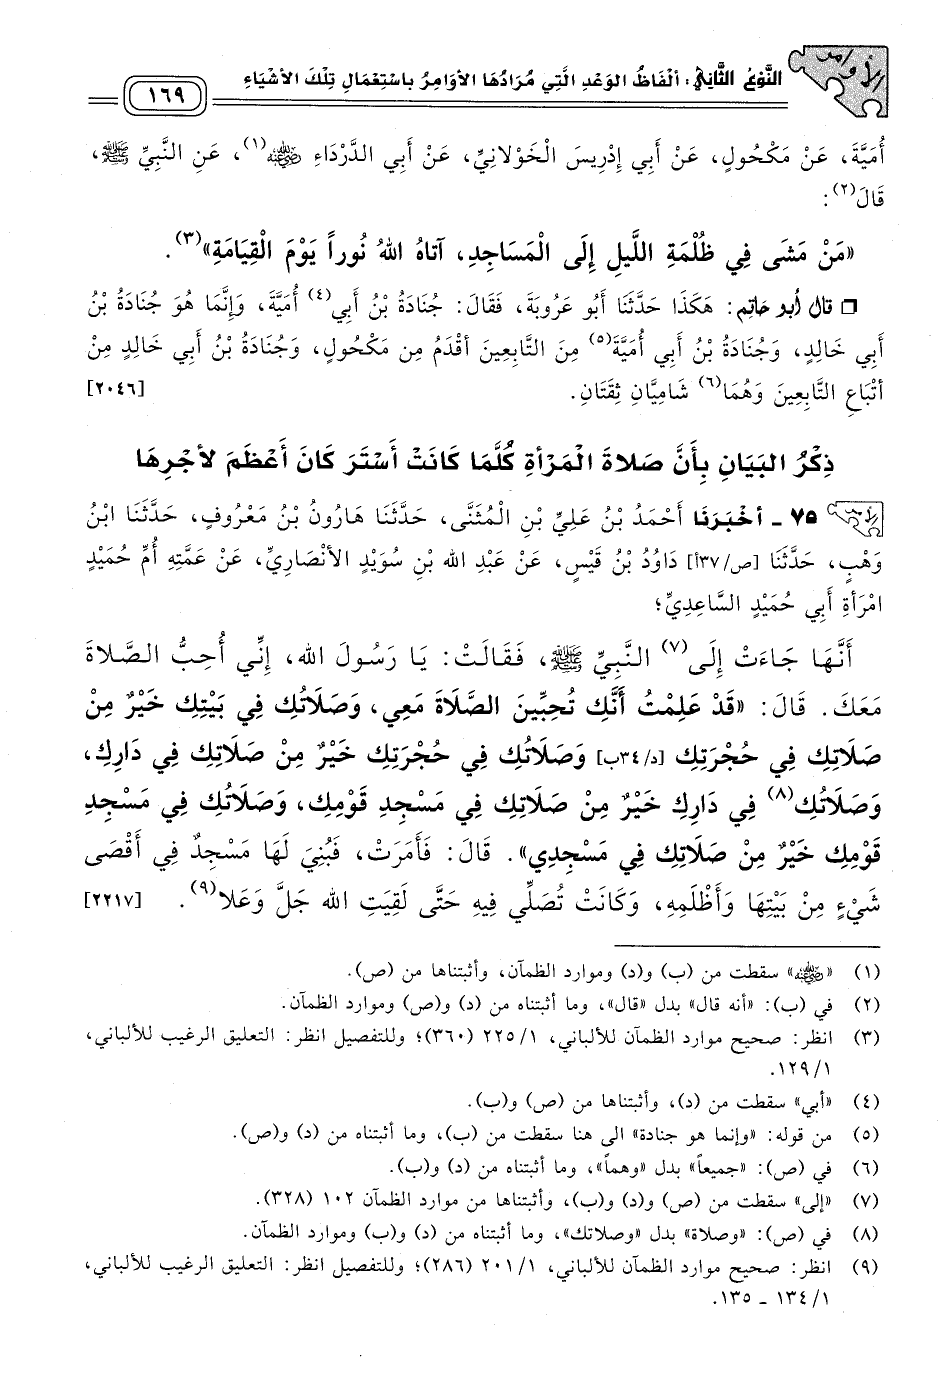 الأوامر
النَّوْعُ الثَّانِي: ألْفَاظُ الوَعْدِ الَّتِي مُرَادُهَا الأوَامِرُ بِاسْتِعْمَالِ تِلْكَ الأشْيَاءِ
١٦٩
أُمَيَّةَ، عَنْ مَكْحُولٍ، عَنْ أَبِي إِدْرِيسَ الْخَوْلانِيِّ، عَنْ أَبِي الدَّرْدَاءِ رضي الله عنه(١)، عَنِ النَّبِيِّ ﷺ،
قَالَ(٢):
«مَنْ مَشَى فِي ظُلْمَةِ اللَّيلِ إِلَى الْمَسَاجِدِ، آتَاهُ اللهُ نُوراً يَوْمَ الْقِيَامَةِ»(٣).
❒ قال أبو حاتِم: هَكَذَا حَدَّثَنَا أَبُو عَرُوبَةَ، فَقَالَ: جُنَادَةُ بْنُ أَبِي(٤) أُمَيَّةَ، وَإِنَّمَا هُوَ جُنَادَةُ بْنُ
أَبِي خَالِدٍ، وَجُنَادَةُ بْنُ أَبِي أُمَيَّةَ(٥) مِنَ التَّابِعِينَ أَقْدَمُ مِن مَكْحُولٍ، وَجُنَادَةُ بْنُ أَبِي خَالِدٍ مِنْ
أتْبَاعِ التَّابِعِينَ وَهُمَا(٦) شَامِيَّانِ ثِقَتَانِ. [٢٠٤٦]
ذِكْرُ البَيَانِ بِأَنَّ صَلاةَ الْمَرْأةِ كُلَّمَا كَانَتْ أَسْتَرَ كَانَ أَعْظَمَ لأجْرِهَا
٧٥ - أخْبَرَنَا أَحْمَدُ بْنُ عَلِيِّ بْنِ الْمُثَنَّى، حَدَّثَنَا هَارُونُ بْنُ مَعْرُوفٍ، حَدَّثَنَا ابْنُ
وَهْبٍ، حَدَّثَنَا [ص/٣٧أ] دَاوُدُ بْنُ قَيْسٍ، عَنْ عَبْدِ الله بْنِ سُوَيْدٍ الأنْصَارِيِّ، عَنْ عَمَّتِهِ أُمِّ حُمَيْدٍ
امْرَأةِ أَبِي حُمَيْدٍ السَّاعِدِيِّ؛
أَنَّهَا جَاءَتْ إِلَى(٧) النَّبِيِّ ﷺ، فَقَالَتْ: يَا رَسُولَ الله، إِنِّي أُحِبُّ الصَّلاةَ
مَعَكَ. قَالَ: «قَدْ عَلِمْتُ أَنَّكِ تُحِبِّينَ الصَّلاةَ مَعِي، وَصَلاتُكِ فِي بَيْتِكِ خَيْرٌ مِنْ
صَلاتِكِ فِي حُجْرَتِكِ [د/٣٤ب] وَصَلاتُكِ فِي حُجْرَتِكِ خَيْرٌ مِنْ صَلاتِكِ فِي دَارِكِ،
وَصَلاتُكِ(٨) فِي دَارِكِ خَيْرٌ مِنْ صَلاتِكِ فِي مَسْجِدِ قَوْمِكِ، وَصَلاتُكِ فِي مَسْجِدِ
قَوْمِكِ خَيْرٌ مِنْ صَلاتِكِ فِي مَسْجِدِي». قَالَ: فَأَمَرَتْ، فَبُنِيَ لَهَا مَسْجِدٌ فِي أَقْصَى
شَيْءٍ مِنْ بَيْتِهَا وَأَظْلَمِهِ، وَكَانَتْ تُصَلِّي فِيهِ حَتَّى لَقِيَتِ الله جَلَّ وَعَلا(٩). [٢٢١٧]
(١) «رضي الله عنه» سقطت من (ب) و(د) وموارد الظمآن، وأثبتناها من (ص).
(٢) في (ب): «أنه قال» بدل «قال»، وما أثبتناه من (د) و(ص) وموارد الظمآن.
(٣) انظر: صحيح موارد الظمآن للألباني، ١/ ٢٢٥ (٣٦٠)؛ وللتفصيل انظر: التعليق الرغيب للألباني،
١/ ١٢٩.
(٤) «أبي» سقطت من (د)، وأثبتناها من (ص) و(ب).
(٥) من قوله: «وإنما هو جنادة» الى هنا سقطت من (ب)، وما أثبتناه من (د) و(ص).
(٦) في (ص): «جميعاً» بدل «وهما»، وما أثبتناه من (د) و(ب).
(٧) «إلى» سقطت من (ص) و(د) و(ب)، وأثبتناها من موارد الظمآن ١٠٢ (٣٢٨).
(٨) في (ص): «وصلاة» بدل «وصلاتك»، وما أثبتناه من (د) و(ب) وموارد الظمآن.
(٩) انظر: صحيح موارد الظمآن للألباني، ١/ ٢٠١ (٢٨٦)؛ وللتفصيل انظر: التعليق الرغيب للألباني،
١/ ١٣٤ - ١٣٥.